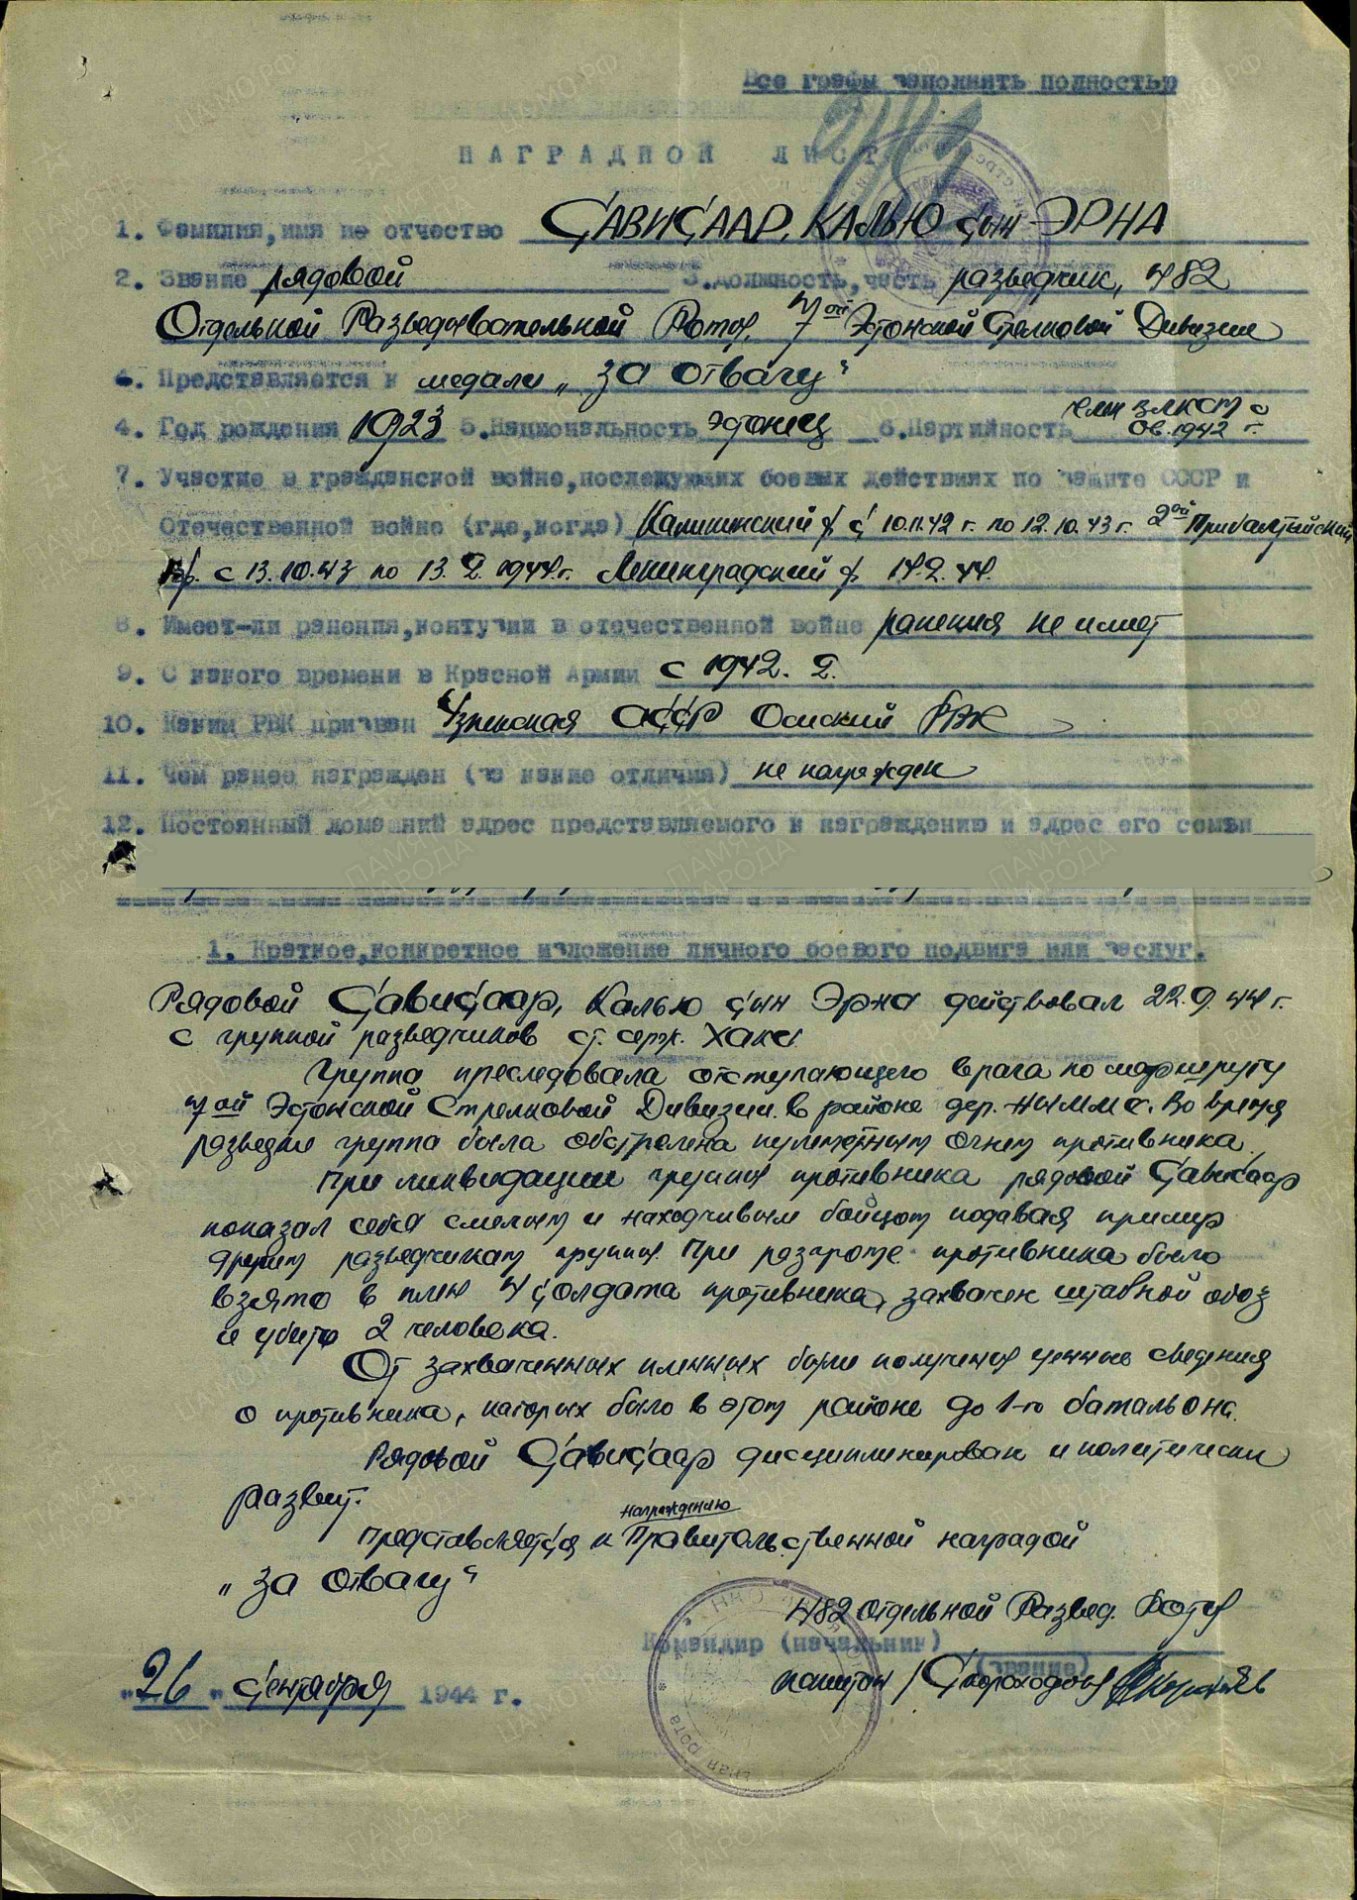 Все графы заполнять полностью
НАГРАДНОЙ ЛИСТ
1. Фамилия, имя и отчество САВИСААР, КАЛЬЮ сын ЭРНА
2. Звание рядовой 3. Должность, часть разведчик, 482
Отдельной Разведывательной Роты, 7ой Эстонской Стрелковой Дивизии
Представляется к медали „За отвагу“
4. Год рождения 1923 5. Национальность эстонец 6. Партийность член ВЛКСМ с
1942 г.
7. Участие в гражданской войне, последующих боевых действиях по защите СССР и
Отечественной войне (где, когда) Калининский ф. с 10.11.42 г. по 12.10.43 г. 2ой Прибалтийский
фр. с 13.10.43 по 13.2.1944 г. Ленинградский ф. 14.2.44.
8. Имеет-ли ранения, контузии в отечественной войне ранения не имеет
9. С какого времени в Красной Армии с 1942. г.
10. Каким РВК призван АССР РВК
11. Чем ранее награжден (за какие отличия) не награжден
12. Постоянный домашний адрес представляемого к награждению и адрес его семьи
1. Краткое, конкретное изложение личного боевого подвига или заслуг.
Рядовой Сависаар, Калью сын Эрна действовал 22.9.44 г.
с группой разведчиков ст. серж. Хакс
Группа преследовала отступающего врага по маршруту
7ой Эстонской Стрелковой Дивизии в районе дер. Во время
разведки группа была обстрелена пулеметным огнем противника.
При ликвидации группы противника рядовой Сависаар
показал себя смелым и находчивым бойцом подавая пример
другим разведчикам группы. При разгроме противника было
взято в плен 4 солдата противника, захвачен штабной обоз
и убито 2 человека.
От захваченных пленных были получены ценные сведения
о противника, которых было в этом районе до 1-го батальона.
Рядовой Сависаар дисциплинирован и политически
развит.
награждению
Представляется к Правительственной наградой
„За отвагу“
482 отдельной Развед. Роты
Командир (начальник)
(звание)
капитан
"26" сентября 1944 г.